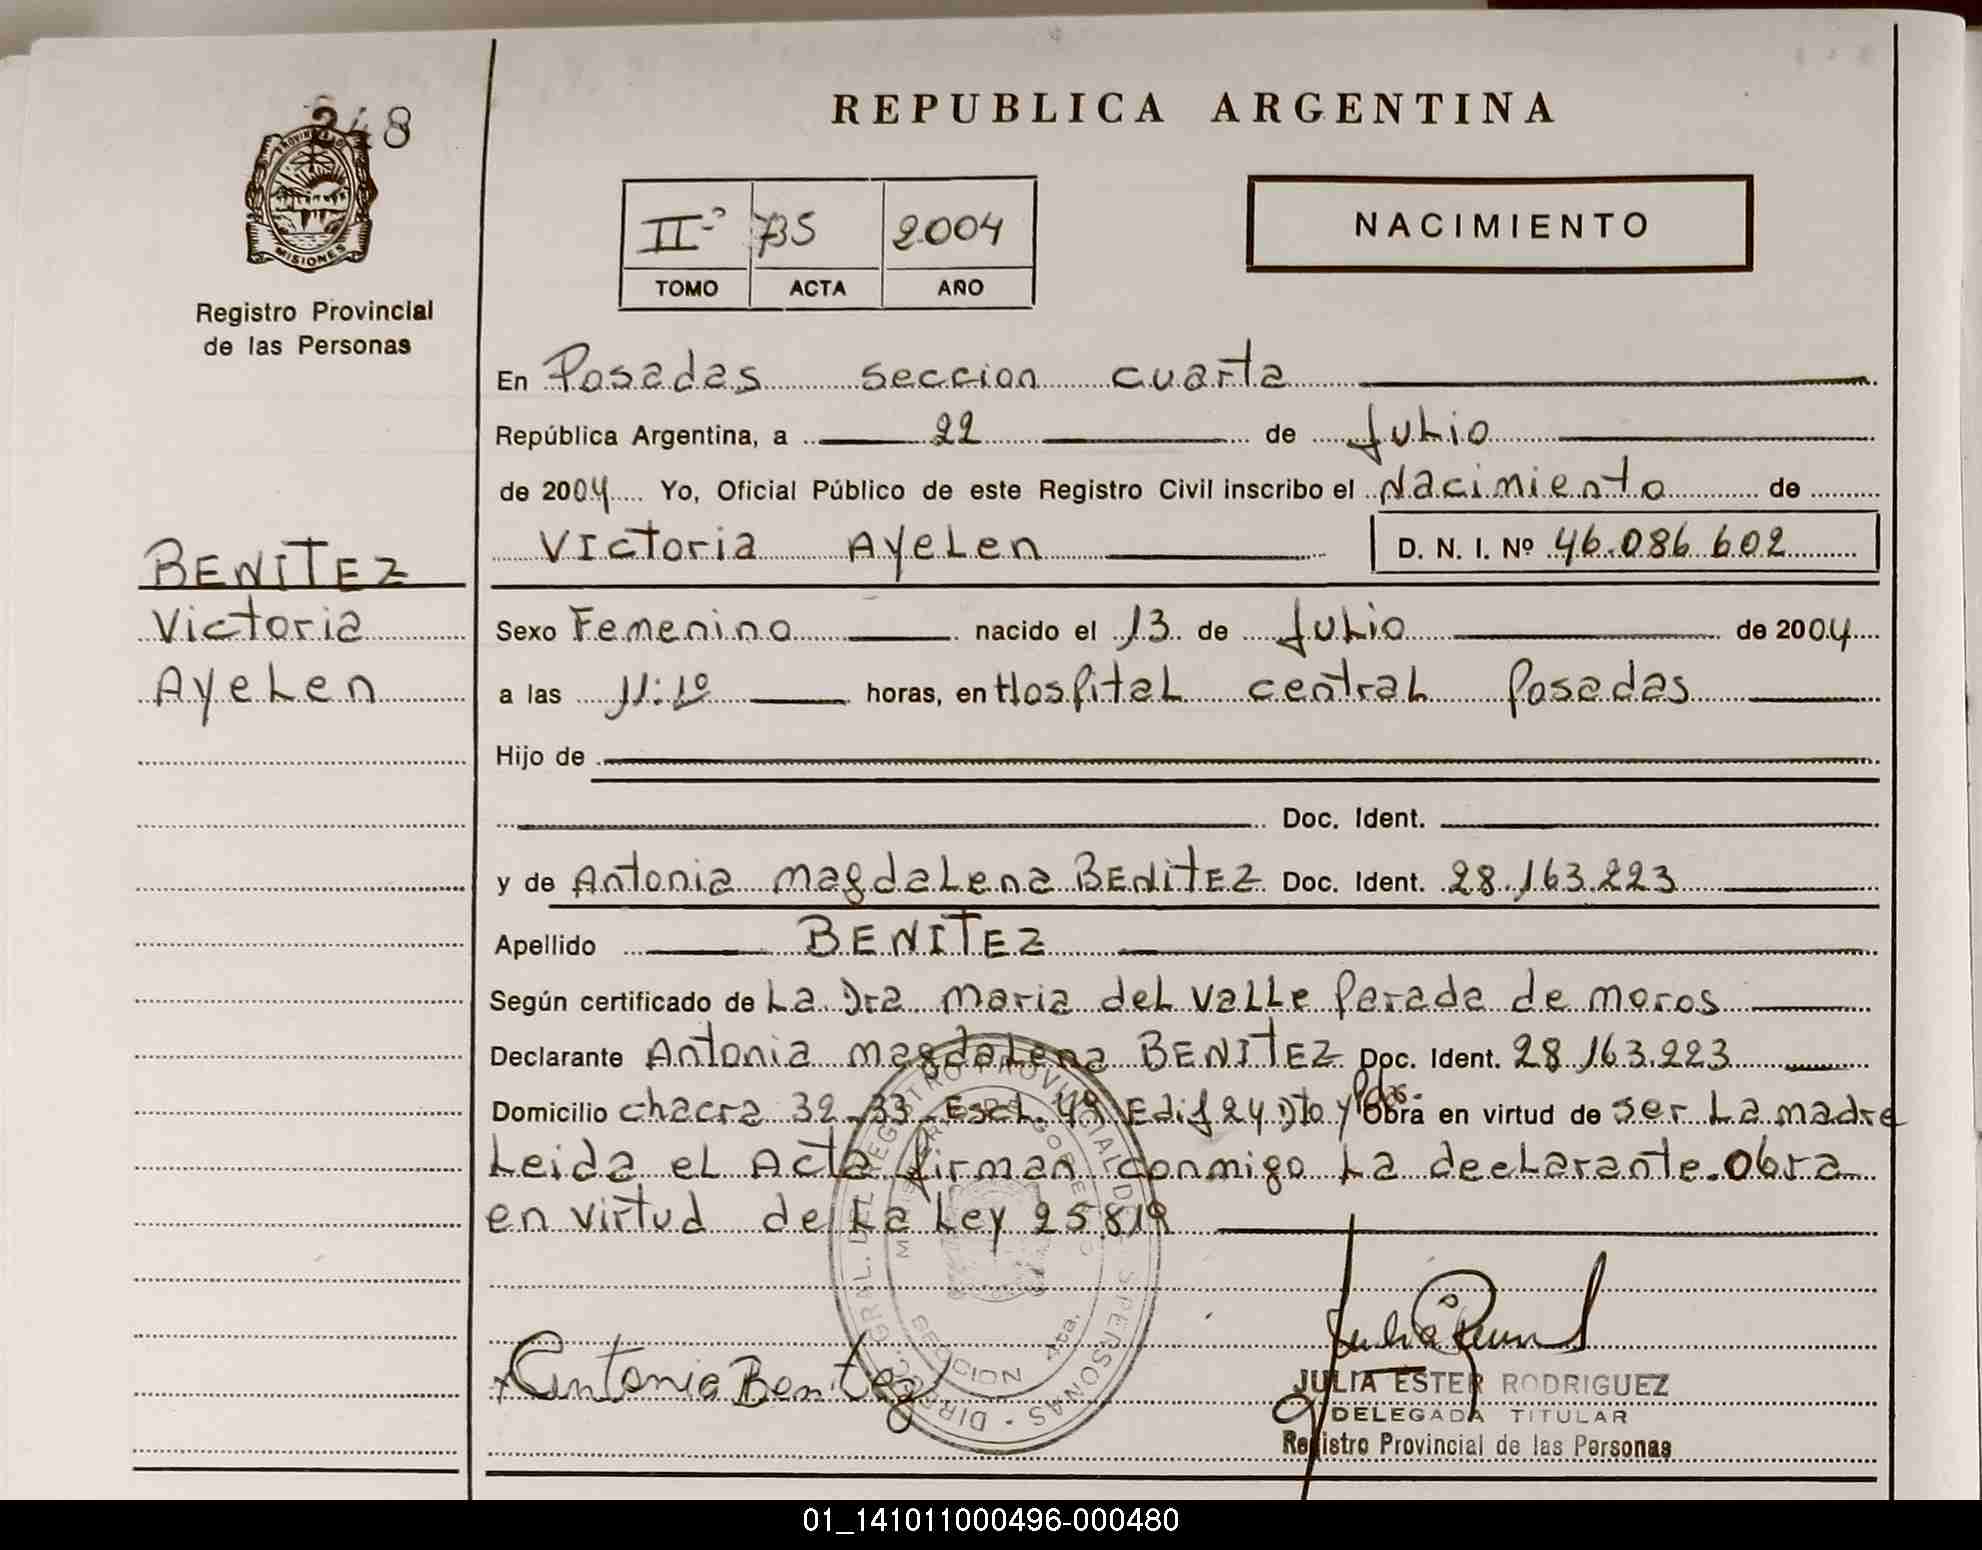 248
PROVINCIA DE
MISIONES
Registro Provincial
de las Personas
BENITEZ
Victoria
Ayelen
REPUBLICA ARGENTINA
IIº 735 2004
TOMO ACTA AÑO
NACIMIENTO
En Posadas seccion cuarta
República Argentina, a 22 de Julio
de 2004 Yo, Oficial Público de este Registro Civil inscribo el Nacimiento de
Victoria Ayelen D. N. I. Nº 46.086.602
Sexo Femenino nacido el 13 de Julio de 2004
a las 11:10 horas, en Hospital central Posadas
Hijo de
Doc. Ident.
y de Antonia magdalena BENITEZ Doc. Ident. 28.163.223
Apellido BENITEZ
Según certificado de La Dra maria del valle Parada de moros
Declarante Antonia magdalena BENITEZ Doc. Ident. 28.163.223
Domicilio chacra 32-33 Escl. 49 Edif 24 Dto y Pdas. Obra en virtud de ser La madre
Leida el Acta firman conmigo La declarante. Obra
en virtud de La Ley 25819
DIREC. GRAL. DEL REGISTRO PROVINCIAL DE LAS PERSONAS
SECCION 4ta.
Antonia Benitez
JULIA ESTER RODRIGUEZ
DELEGADA TITULAR
Registro Provincial de las Personas
01_141011000496-000480